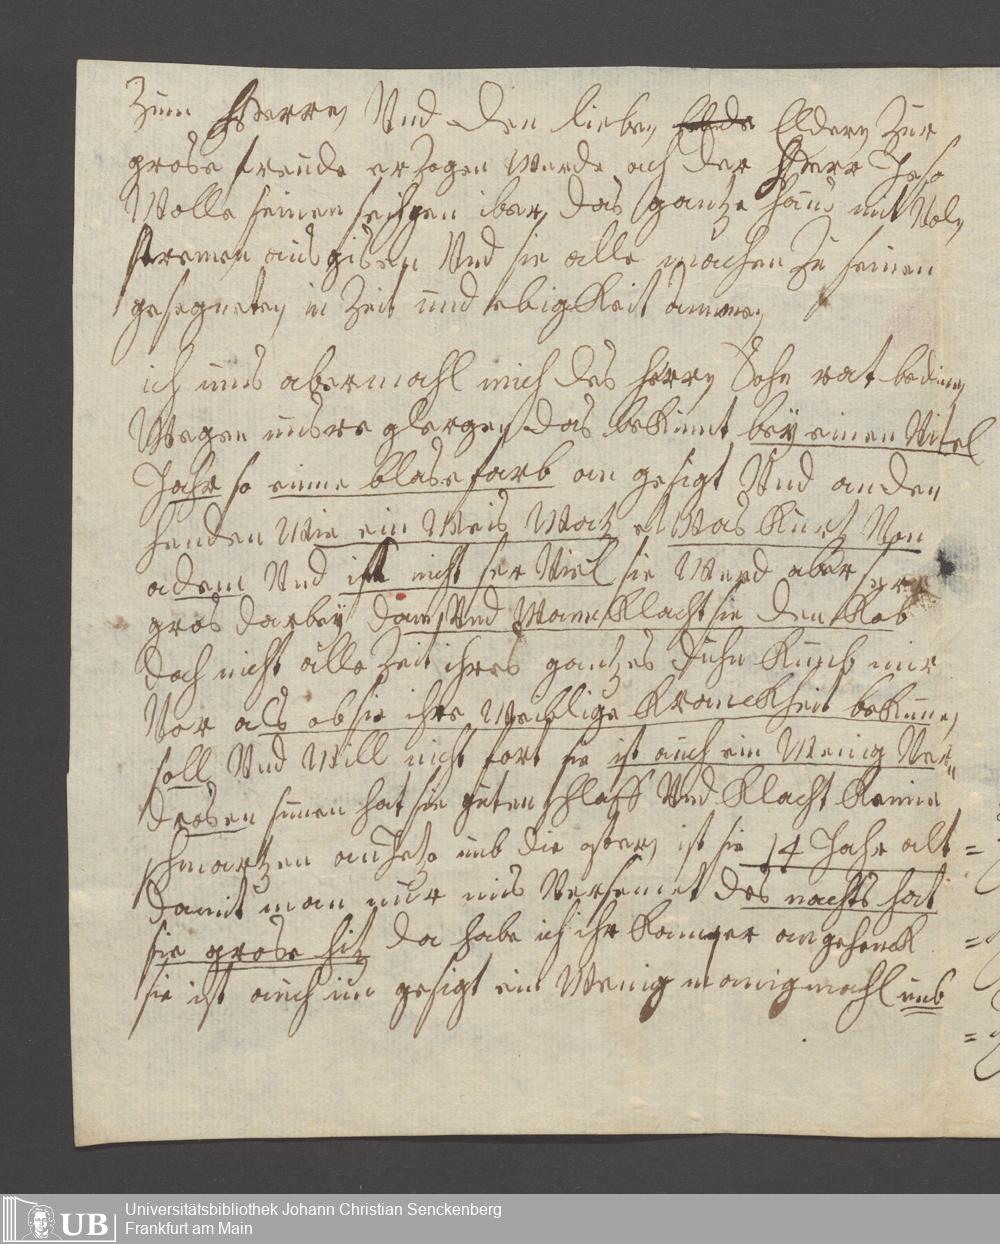 Zum Herren Und den lieben Eldern Zur
grose freude erzogen werde ach der Herr Jeso
Wolle seinen sechgen iber das gantze hauß mit Vol
stremen aus gisen Und sie alle machen Zu seinen
gesegneten in Zeit und ebigkeit ammen
ich mus abermahl mich des herrn Dohn rat bedinen
Wegen unsre das bekumt bey einen Virtel
Jahr so eine blase farb an gesigt Und an den
henden Wie ein Weis Watz etwas kurtz Von
adem Und ist nicht ser Viel sie Werd aber ser
gros darbey dann Und Wann klacht sie den kob
doch nicht alle Zeit ihres gantzes duhn kumb mir
Vor als ob sie ihre Weiblige kranckheit bekumen
soll Und Will nicht fort sie ist auch ein Wenig Ver-
drosen sunen hat sie guten schlaff Und klacht keine
schmartzen an Jetzo umb die ostern ist sie 14 Jahr alt
damit man nur nis Versemet des nachts hat
sie grose hitz da habe ich ihr kamper angehenck
sie ist auch im gesigt ein Wenig manigmahl umb
Universitätsbibliothek Johann Christian Senckenberg
UB Frankfurt am Main